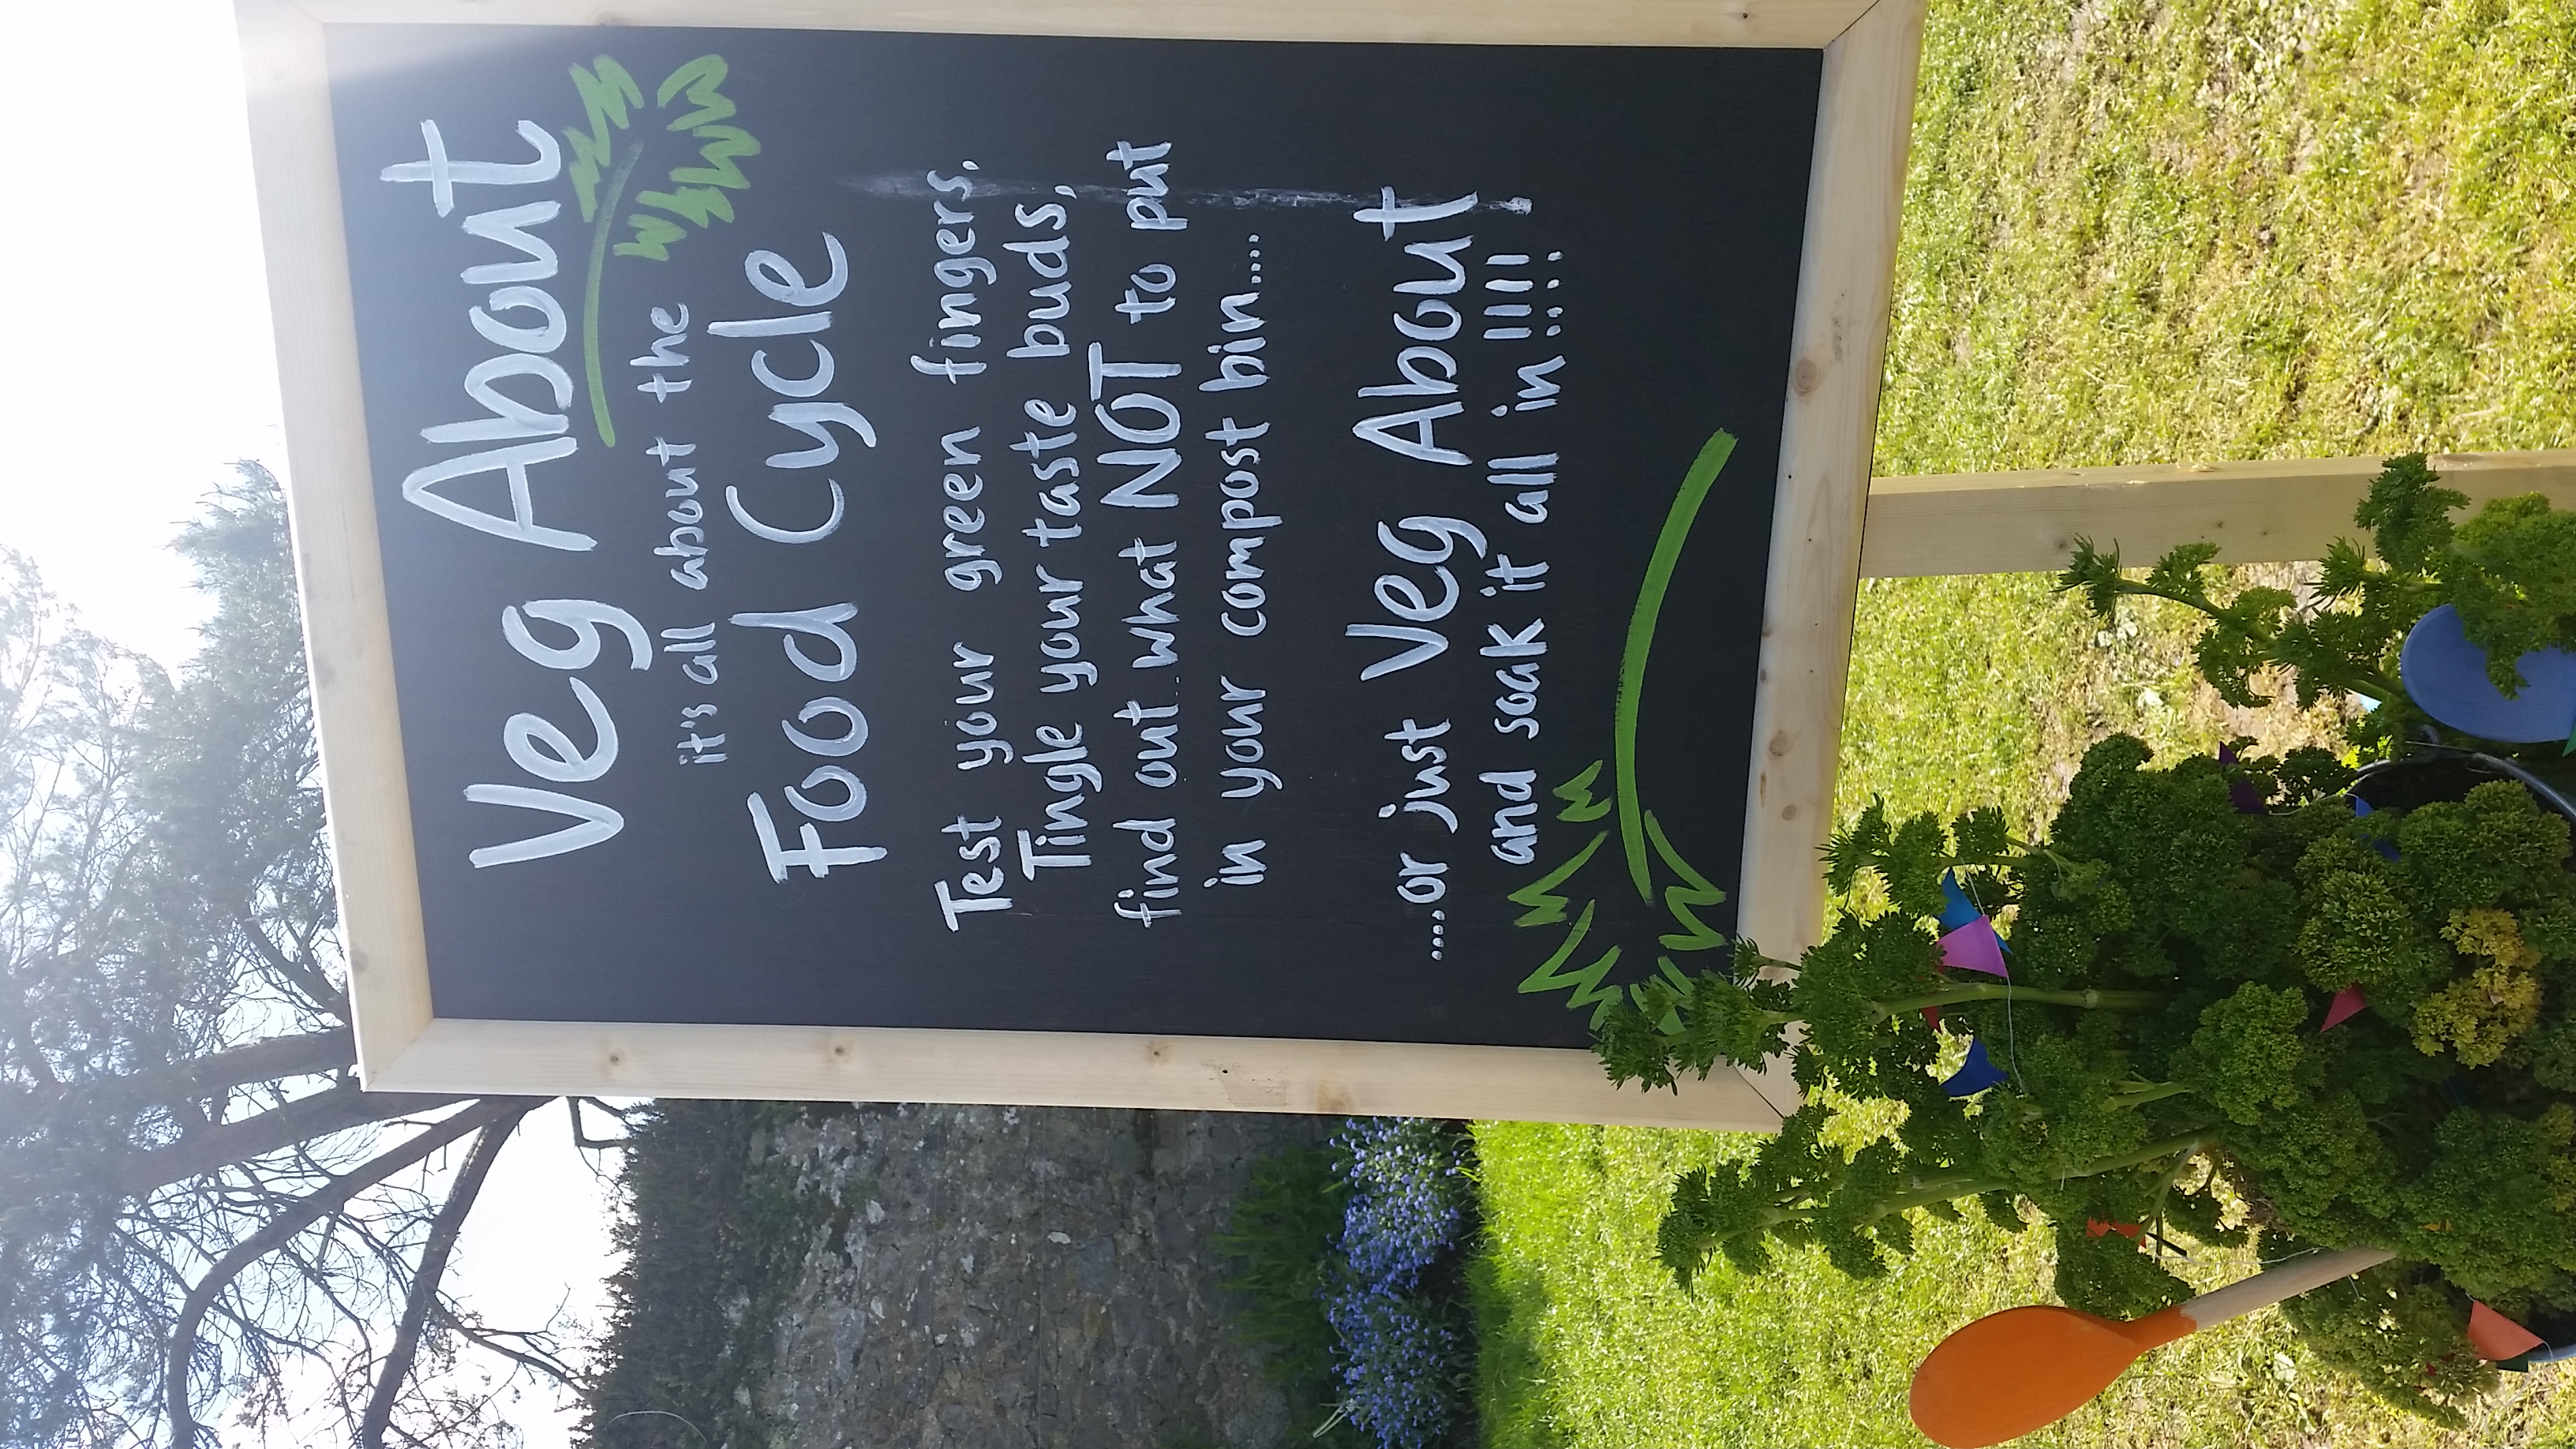 Veg About
it's all about the
Food Cycle
Test your green fingers.
Tingle your taste buds,
find out..what NOT to put
in your compost bin....
....or just Veg About
and soak it all in!!!!